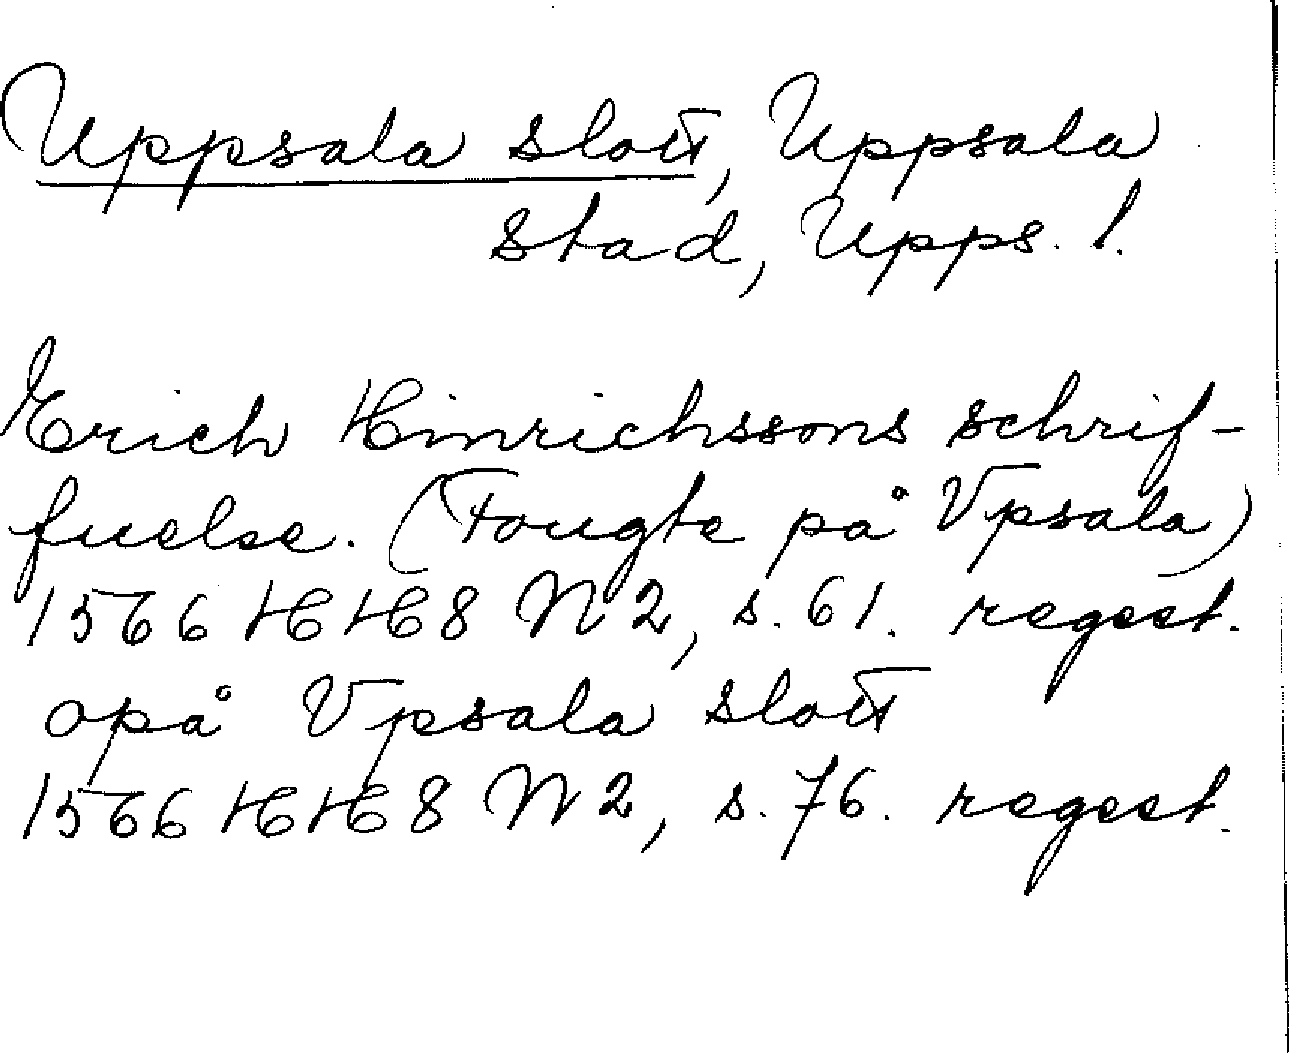 Uppsala slott, Uppsala
stad, Upps. l.
Erich Hinrichssons schrif-
fuelse. (Fougte på Vpsala)
1566 HH 8 N 2, s. 61. regest.
opå Vpsala slott
1566 HH 8 N 2, s. 76. regest.